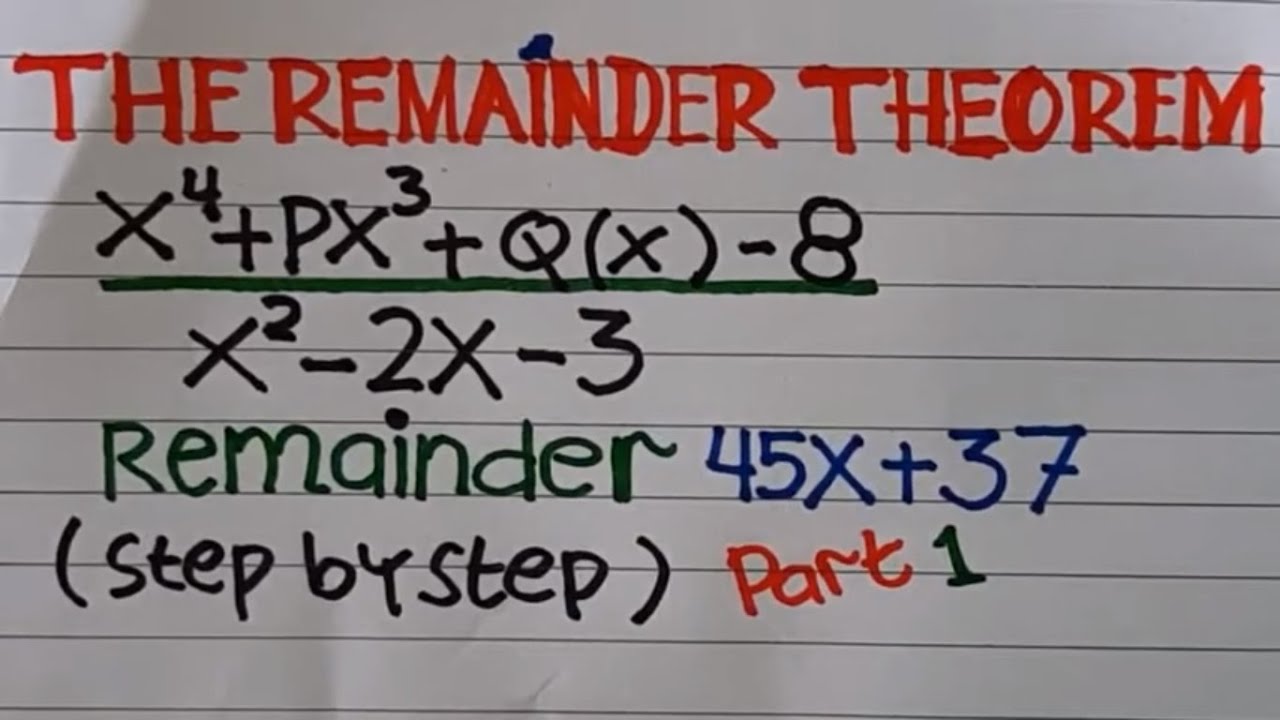 THE REMAiNDER THEOREM
x⁴+Px³+Q(x)-8
x²-2x-3
Remainder 45x+37
(step by step) Part 1